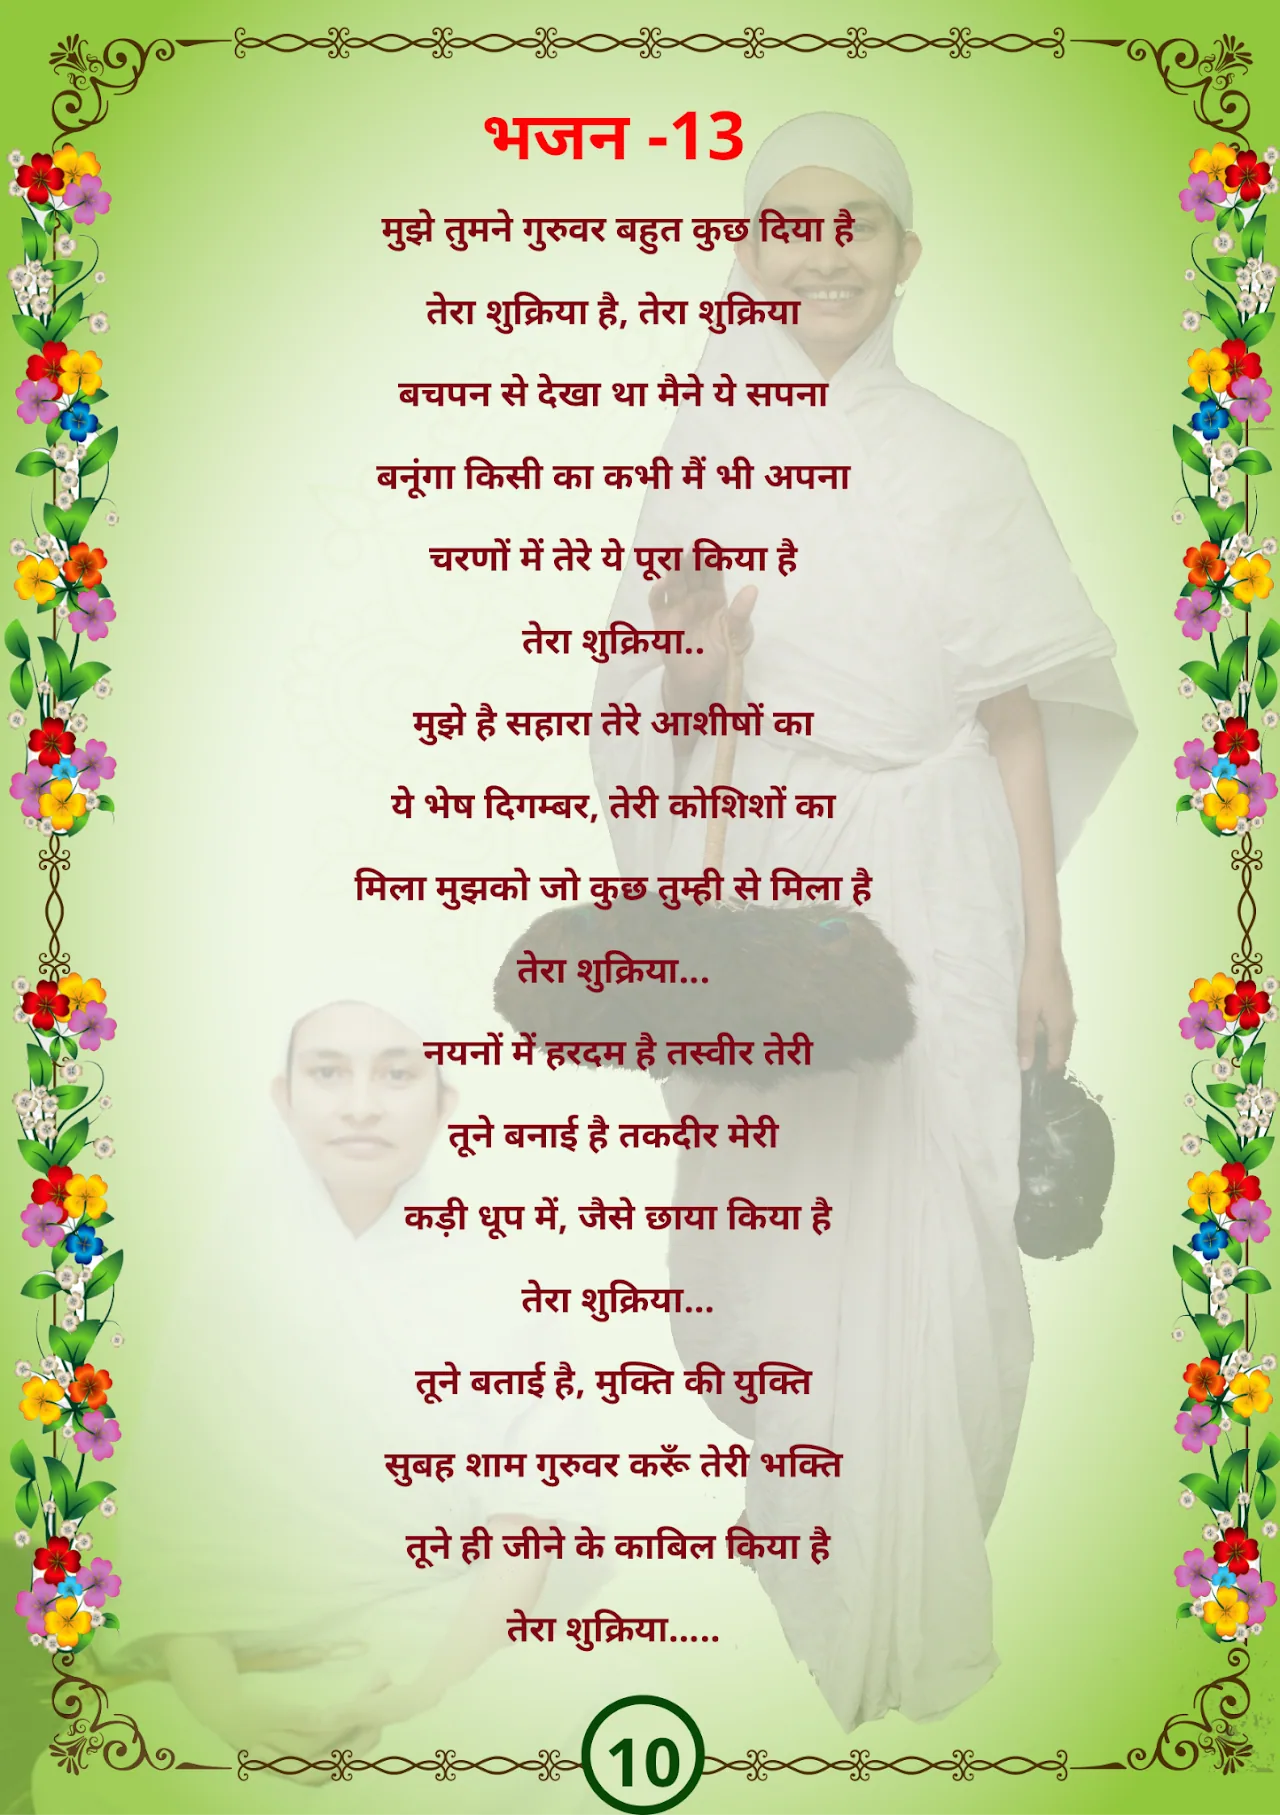 भजन -13
मुझे तुमने गुरुवर बहुत कुछ दिया है
तेरा शुक्रिया है, तेरा शुक्रिया
बचपन से देखा था मैने ये सपना
बनूंगा किसी का कभी मैं भी अपना
चरणों में तेरे ये पूरा किया है
तेरा शुक्रिया..
मुझे है सहारा तेरे आशीषों का
ये भेष दिगम्बर, तेरी कोशिशों का
मिला मुझको जो कुछ तुम्ही से मिला है
तेरा शुक्रिया...
नयनों में हरदम है तस्वीर तेरी
तूने बनाई है तकदीर मेरी
कड़ी धूप में, जैसे छाया किया है
तेरा शुक्रिया...
तूने बताई है, मुक्ति की युक्ति
सुबह शाम गुरुवर करूँ तेरी भक्ति
तूने ही जीने के काबिल किया है
तेरा शुक्रिया.....
10